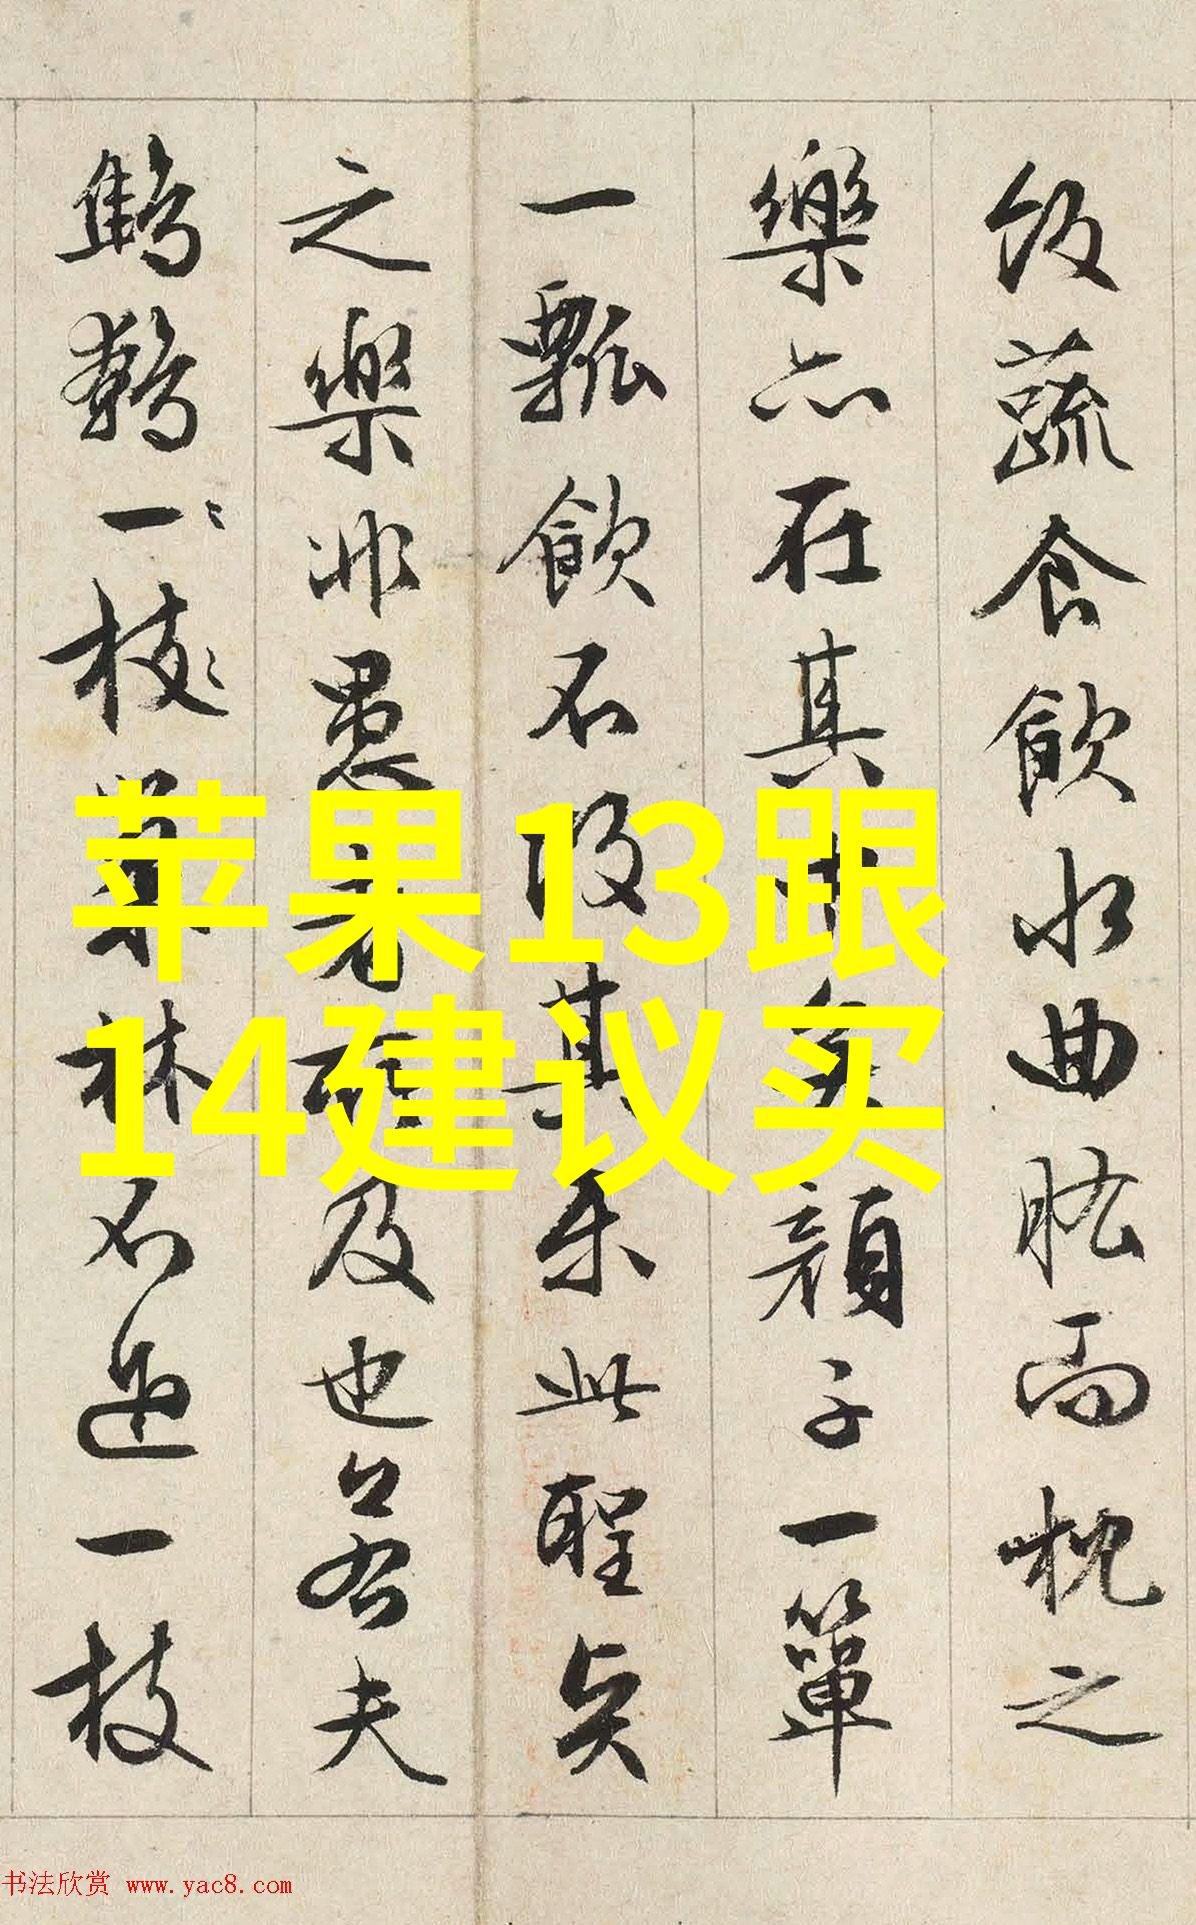 飯蔬食飲水曲肱而枕之
樂亦在其中矣顔子一簞
一瓢飲不改其樂此聖賢
之樂非愚者所及也若夫
鷦鷯一枝巢林不過一枝
苹果13跟
14建议卖
书法欣赏 www.yac8.com